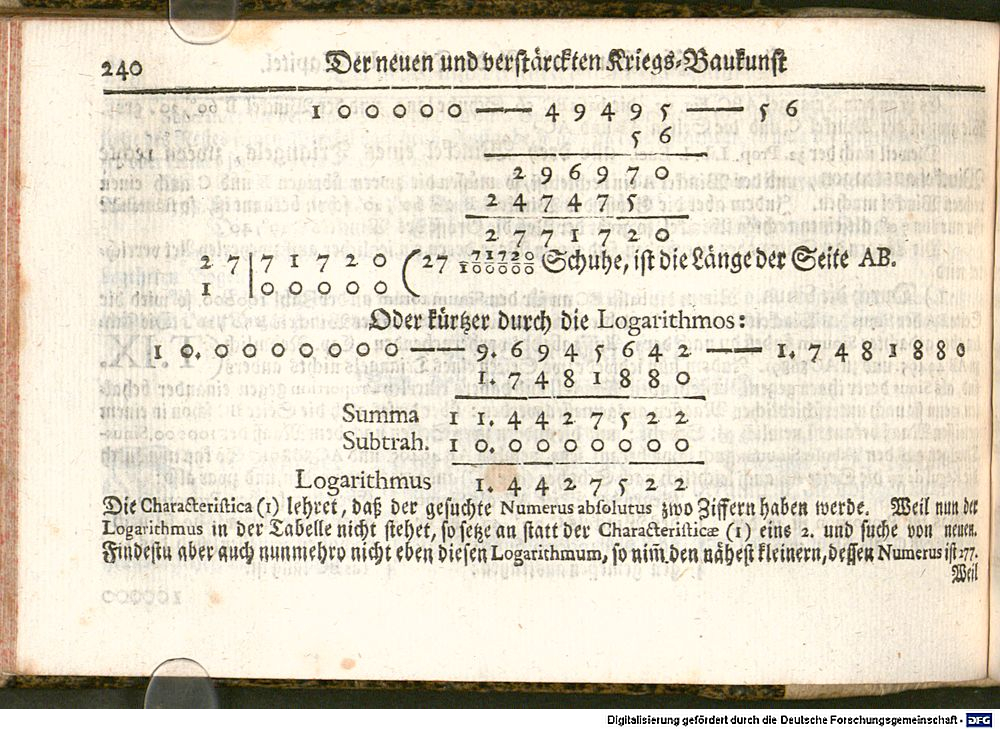 240 Der neuen und verstärckten Kriegs-Baukunst
100000 —— 49495 —— 56
56
296970
247475
2771720
27|71720 (27 71720/100000 Schuhe, ist die Länge der Seite AB.
1 |00000
Oder kürtzer durch die Logarithmos:
10.0000000 —— 9.6945642 —— 1.7481880
1.7481880
Summa 11.4427522
Subtrah. 10.0000000
Logarithmus 1.4427522
Die Characteristica (1) lehret, daß der gesuchte Numerus absolutus zwo Ziffern haben werde. Weil nun der
Logarithmus in der Tabelle nicht stehet, so setze an statt der Characteristicæ (1) eine 2. und suche von neuen.
Findestu aber auch nunmehro nicht eben diesen Logarithmum, so nim̃ den nähest kleinern, dessen Numerus ist 277.
Weil
Digitalisierung gefördert durch die Deutsche Forschungsgemeinschaft - DFG